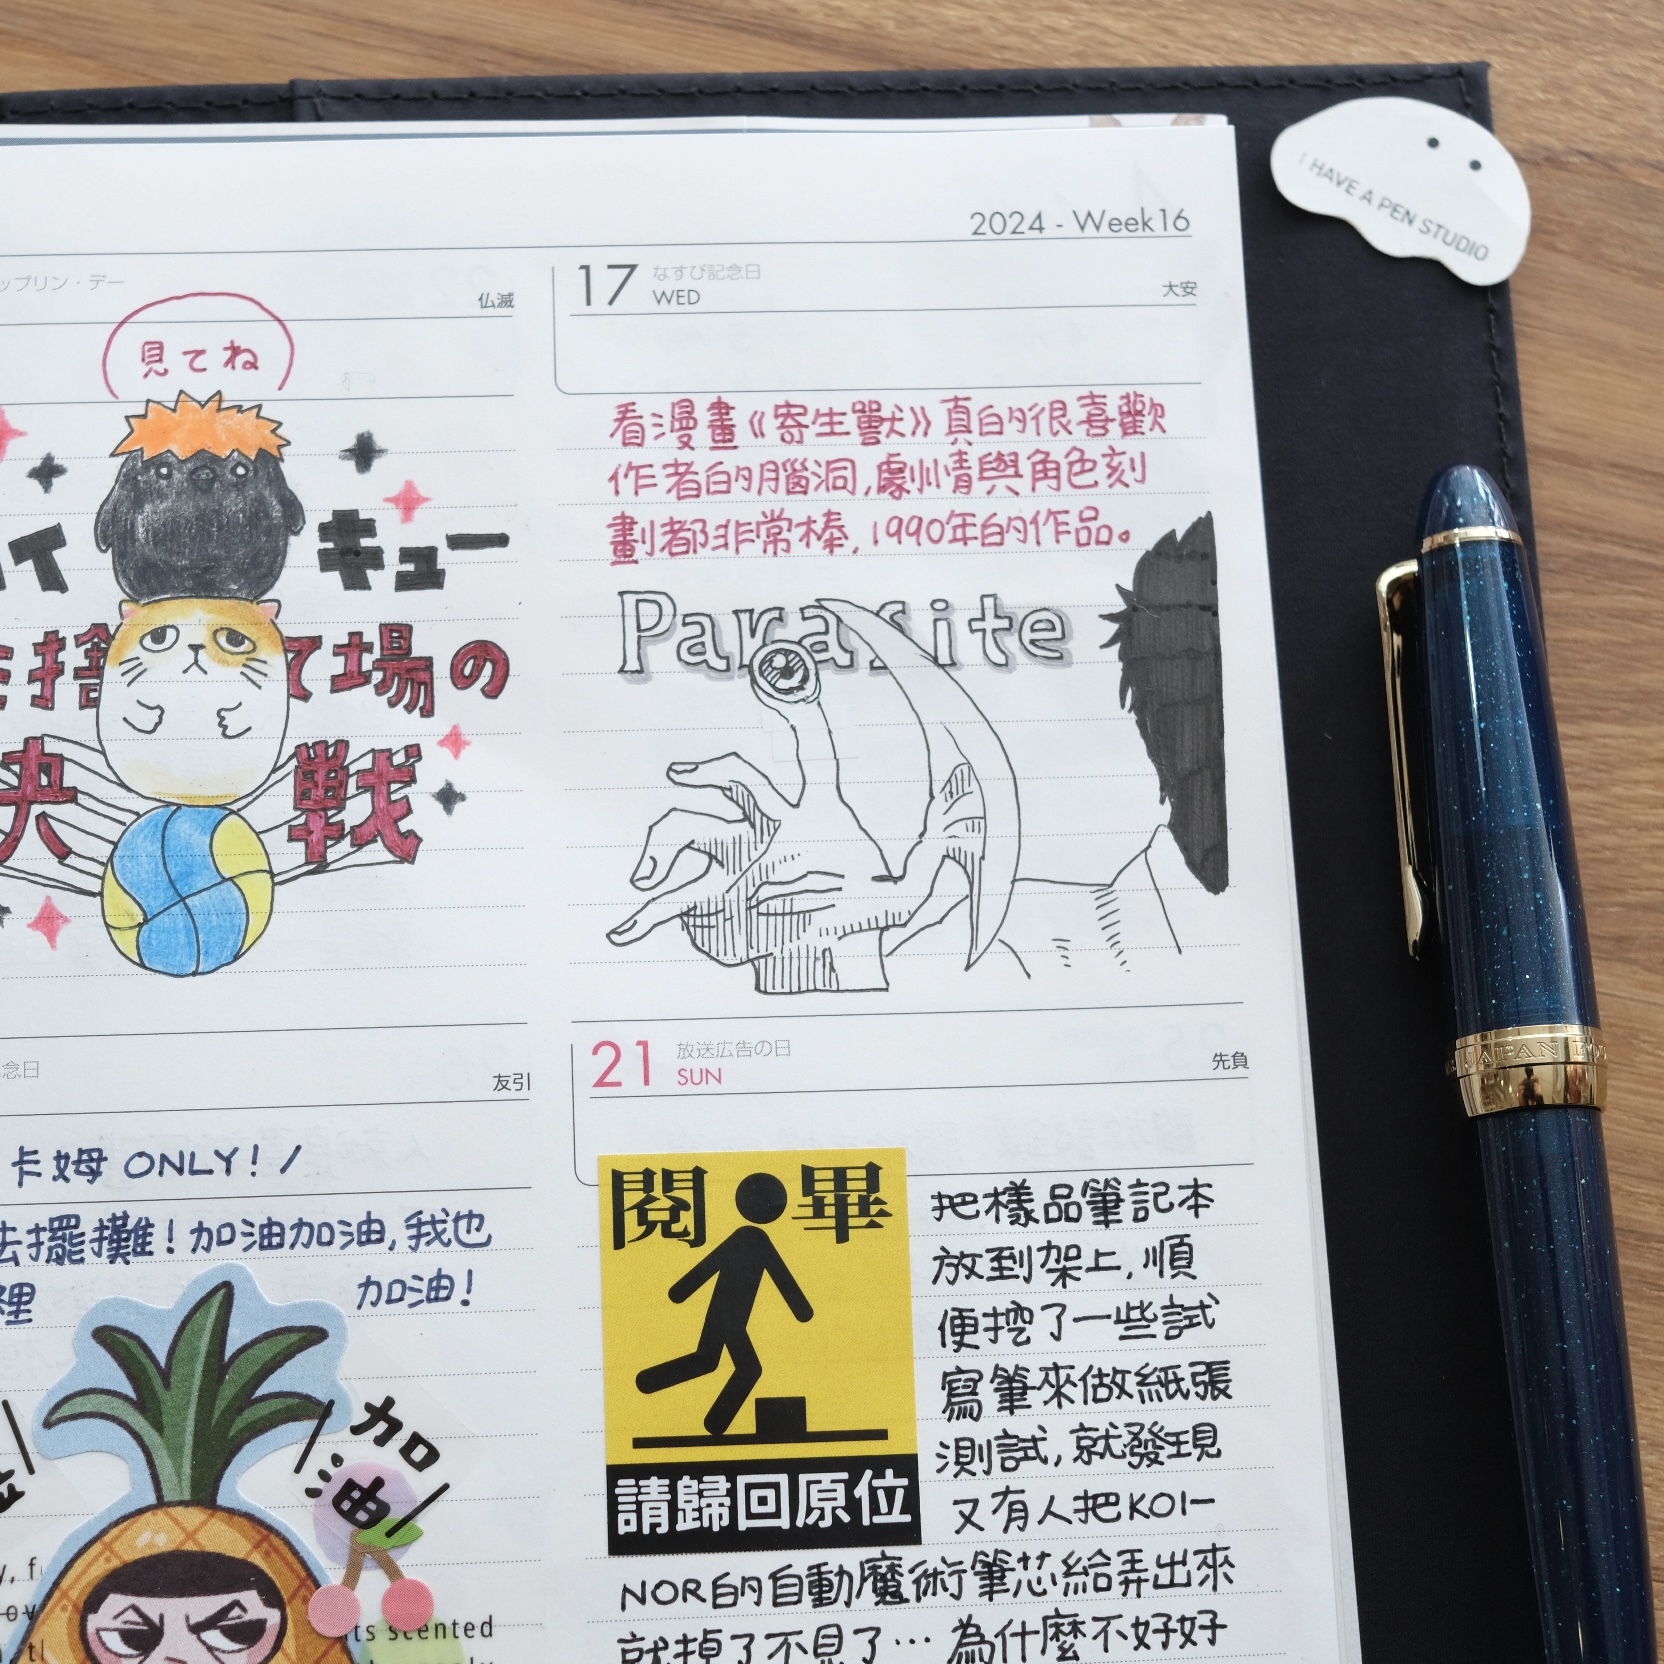 I HAVE A PEN STUDIO
2024 - Week16
ップリン・デー
仏滅
見てね
イ キュー
捨て場の
決戦
17 なすび記念日
WED
大安
看漫畫《寄生獸》真的很喜歡
作者的腦洞,劇情與角色刻
劃都非常棒,1990年的作品。
Parasite
JAPAN
念日
友引
卡姆 ONLY! /
去擺攤!加油加油,我也
裡 加油!
加
油
ts scented
21 放送広告の日
SUN
先負
閱畢
請歸回原位
把樣品筆記本
放到架上,順
便挖了一些試
寫筆來做紙張
測試,就發現
又有人把KOI-
NOR的自動魔術筆芯給弄出來
就掉了不見了… 為什麼不好好